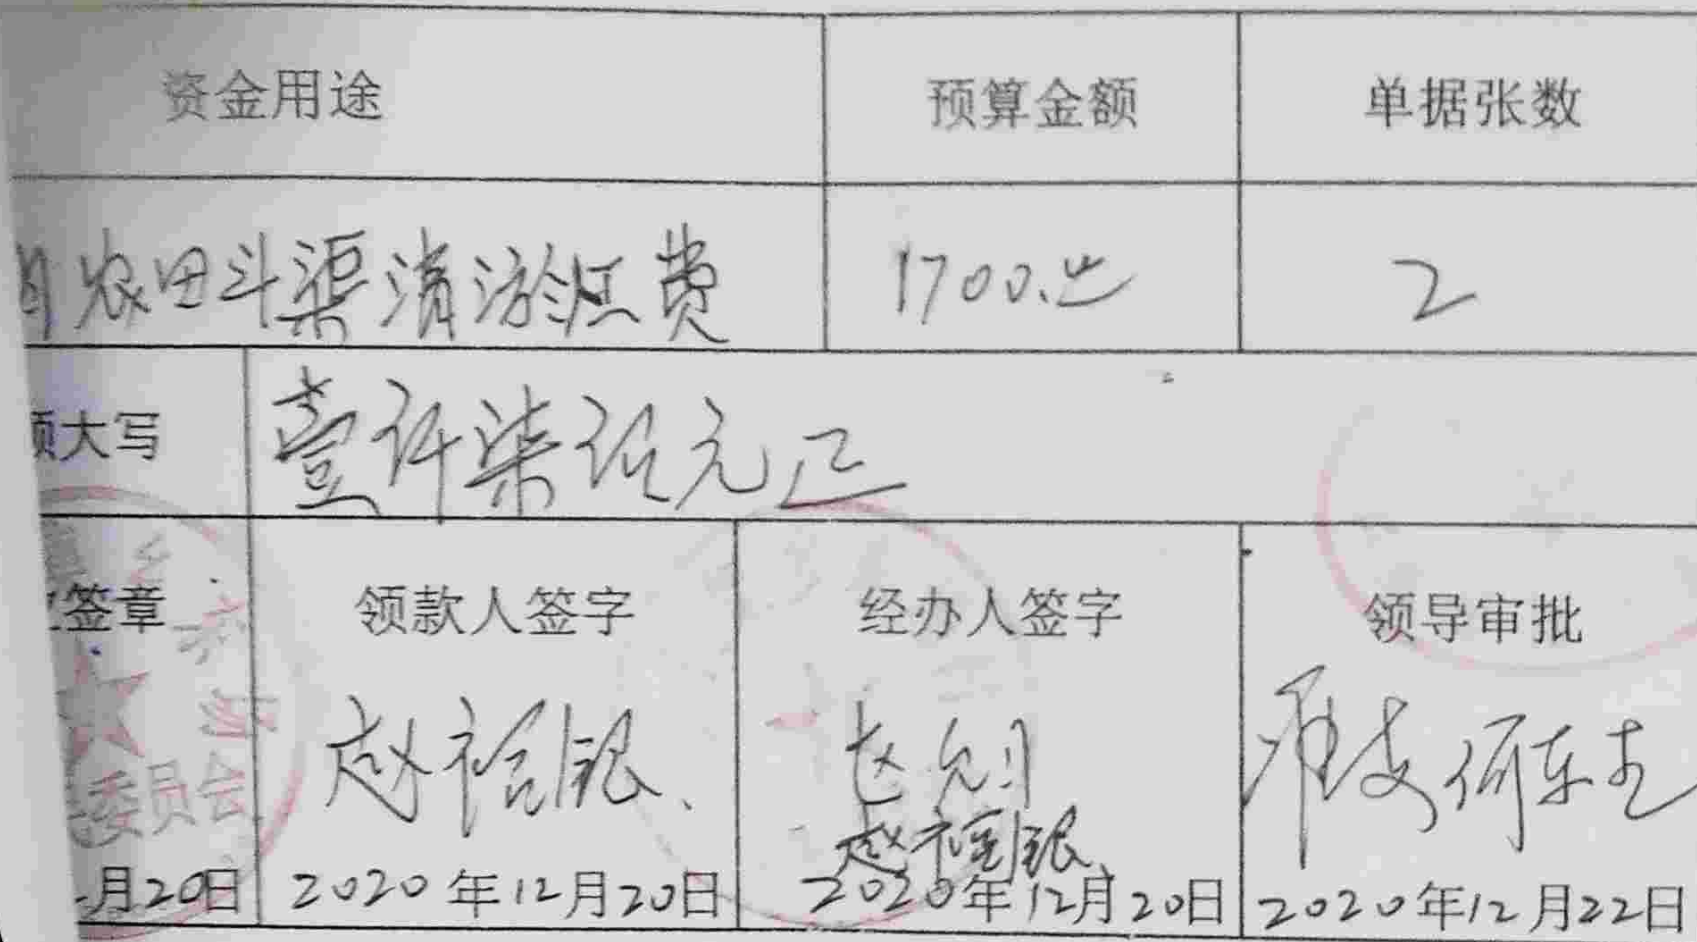 资金用途 预算金额 单据张数
月农田斗渠清淤组费 1700.00 2
额大写 壹仟柒佰元正
签章 领款人签字 经办人签字 领导审批
赵福银
赵福银
委员会
月20日 2020年12月20日 2020年12月20日 2020年12月22日